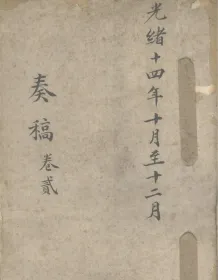 光緒十四年十月至十二月
奏稿卷貳